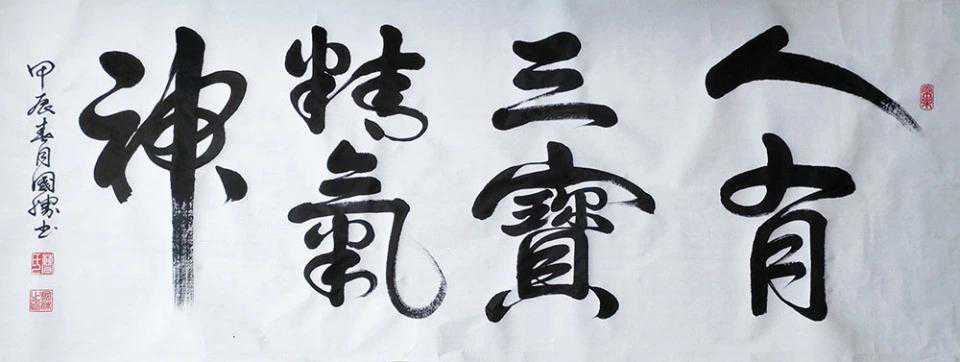 人有
三寶
精氣
神
甲辰春月國勝书